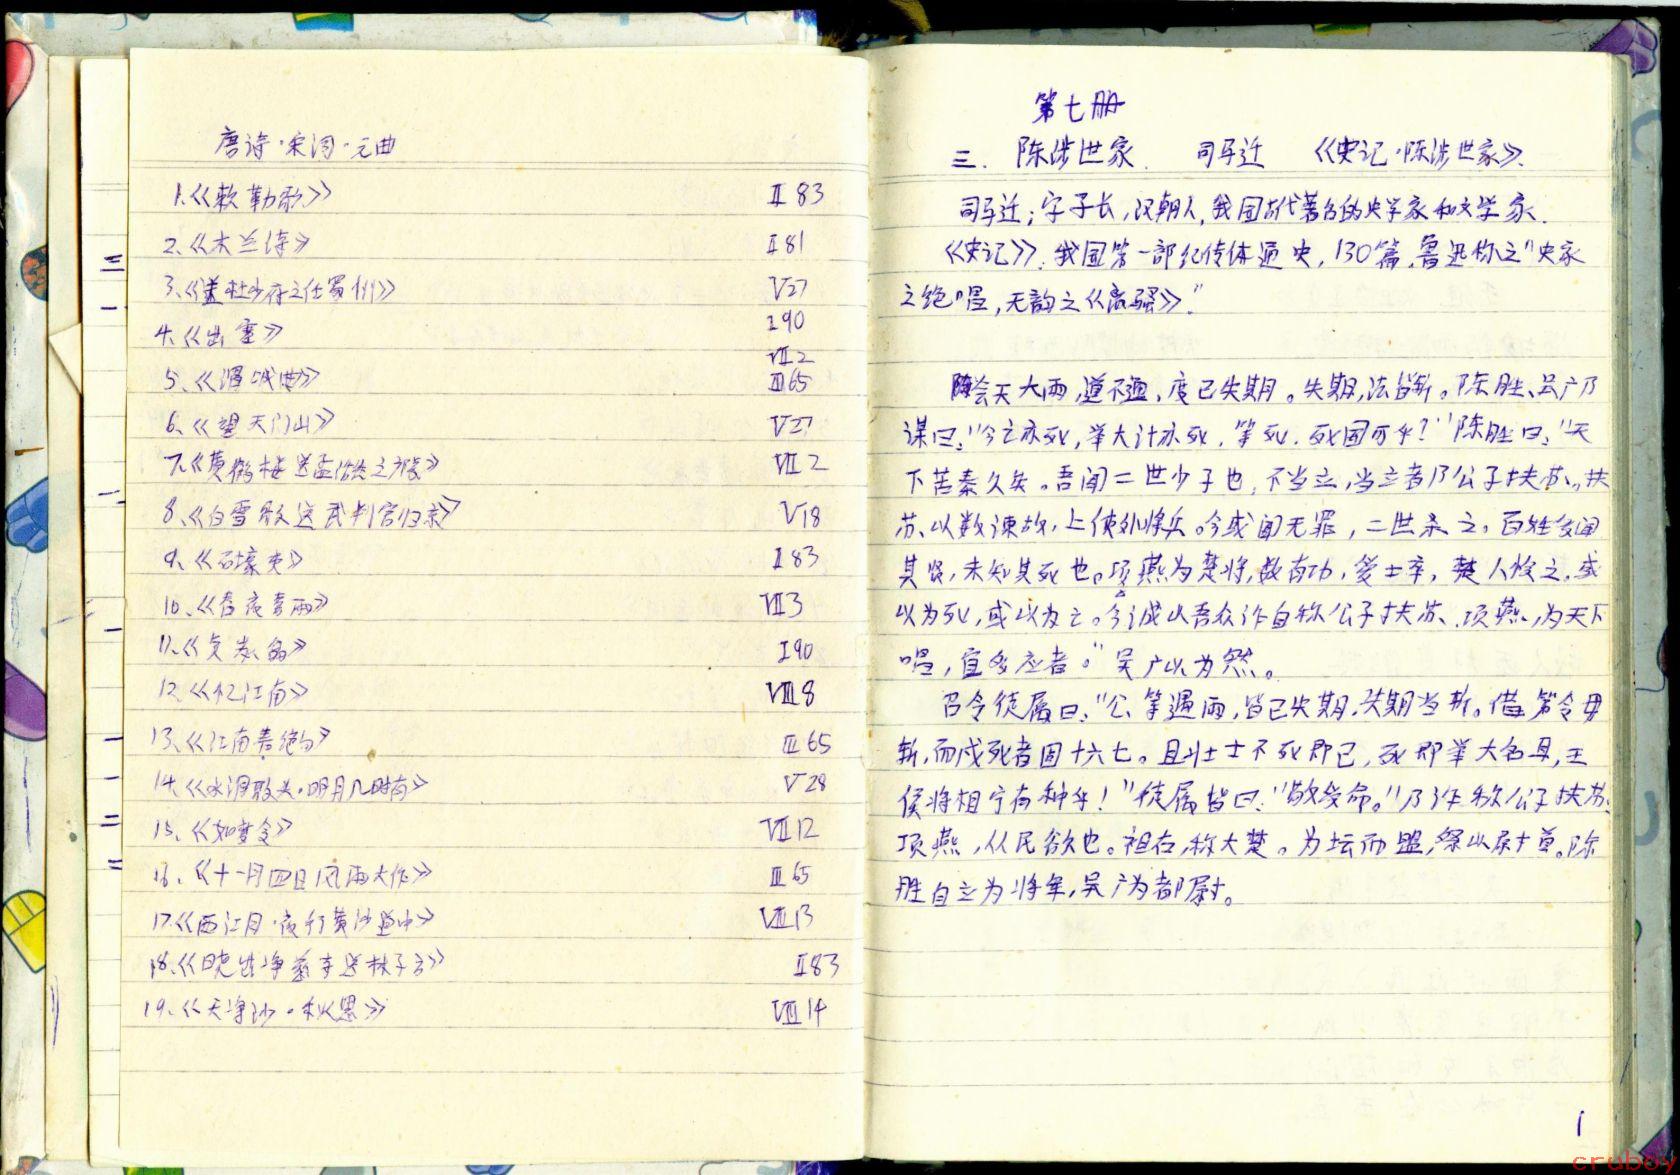 唐诗·宋词·元曲
1.《敕勒歌》 Ⅱ83
2.《木兰诗》 Ⅱ81
3.《送杜少府之任蜀州》 Ⅴ27
4.《出塞》 Ⅰ90
Ⅶ2
5.《渭城曲》 Ⅲ65
6.《望天门山》 Ⅴ27
7.《黄鹤楼送孟浩然之广陵》 Ⅶ2
8.《白雪歌送武判官归京》 Ⅴ18
9.《石壕吏》 Ⅱ83
10.《春夜喜雨》 Ⅶ3
11.《卖炭翁》 Ⅰ90
12.《忆江南》 Ⅷ8
13.《江南春绝句》 Ⅲ65
14.《水调歌头·明月几时有》 Ⅴ28
15.《如梦令》 Ⅶ12
16.《十一月四日风雨大作》 Ⅲ65
17.《西江月·夜行黄沙道中》 Ⅷ13
18.《晓出净慈寺送林子方》 Ⅱ83
19.《天净沙·秋思》 Ⅷ14
第七册
三. 陈涉世家. 司马迁 《史记·陈涉世家》.
司马迁;字子长,汉朝人,我国古代著名的史学家和文学家.
《史记》.我国第一部纪传体通史,130篇,鲁迅称之"史家
之绝唱,无韵之《离骚》."
会天大雨,道不通,度已失期。失期,法皆斩。陈胜、吴广乃
谋曰:"今亡亦死,举大计亦死,等死,死国可乎?"陈胜曰:"天
下苦秦久矣。吾闻二世少子也,不当立,当立者乃公子扶苏。扶
苏以数谏故,上使外将兵。今或闻无罪,二世杀之。百姓多闻
其贤,未知其死也。项燕为楚将,数有功,爱士卒,楚人怜之,或
以为死,或以为亡。今诚以吾众诈自称公子扶苏、项燕,为天下
唱,宜多应者。"吴广以为然。
召令徒属曰:"公等遇雨,皆已失期,失期当斩。借第令毋
斩,而戍死者固十六七。且壮士不死即已,死即举大名耳,王
侯将相宁有种乎!"徒属皆曰:"敬受命。"乃诈称公子扶苏、
项燕,从民欲也。袒右,称大楚。为坛而盟,祭以尉首。陈
胜自立为将军,吴广为都尉。
1
cruboy